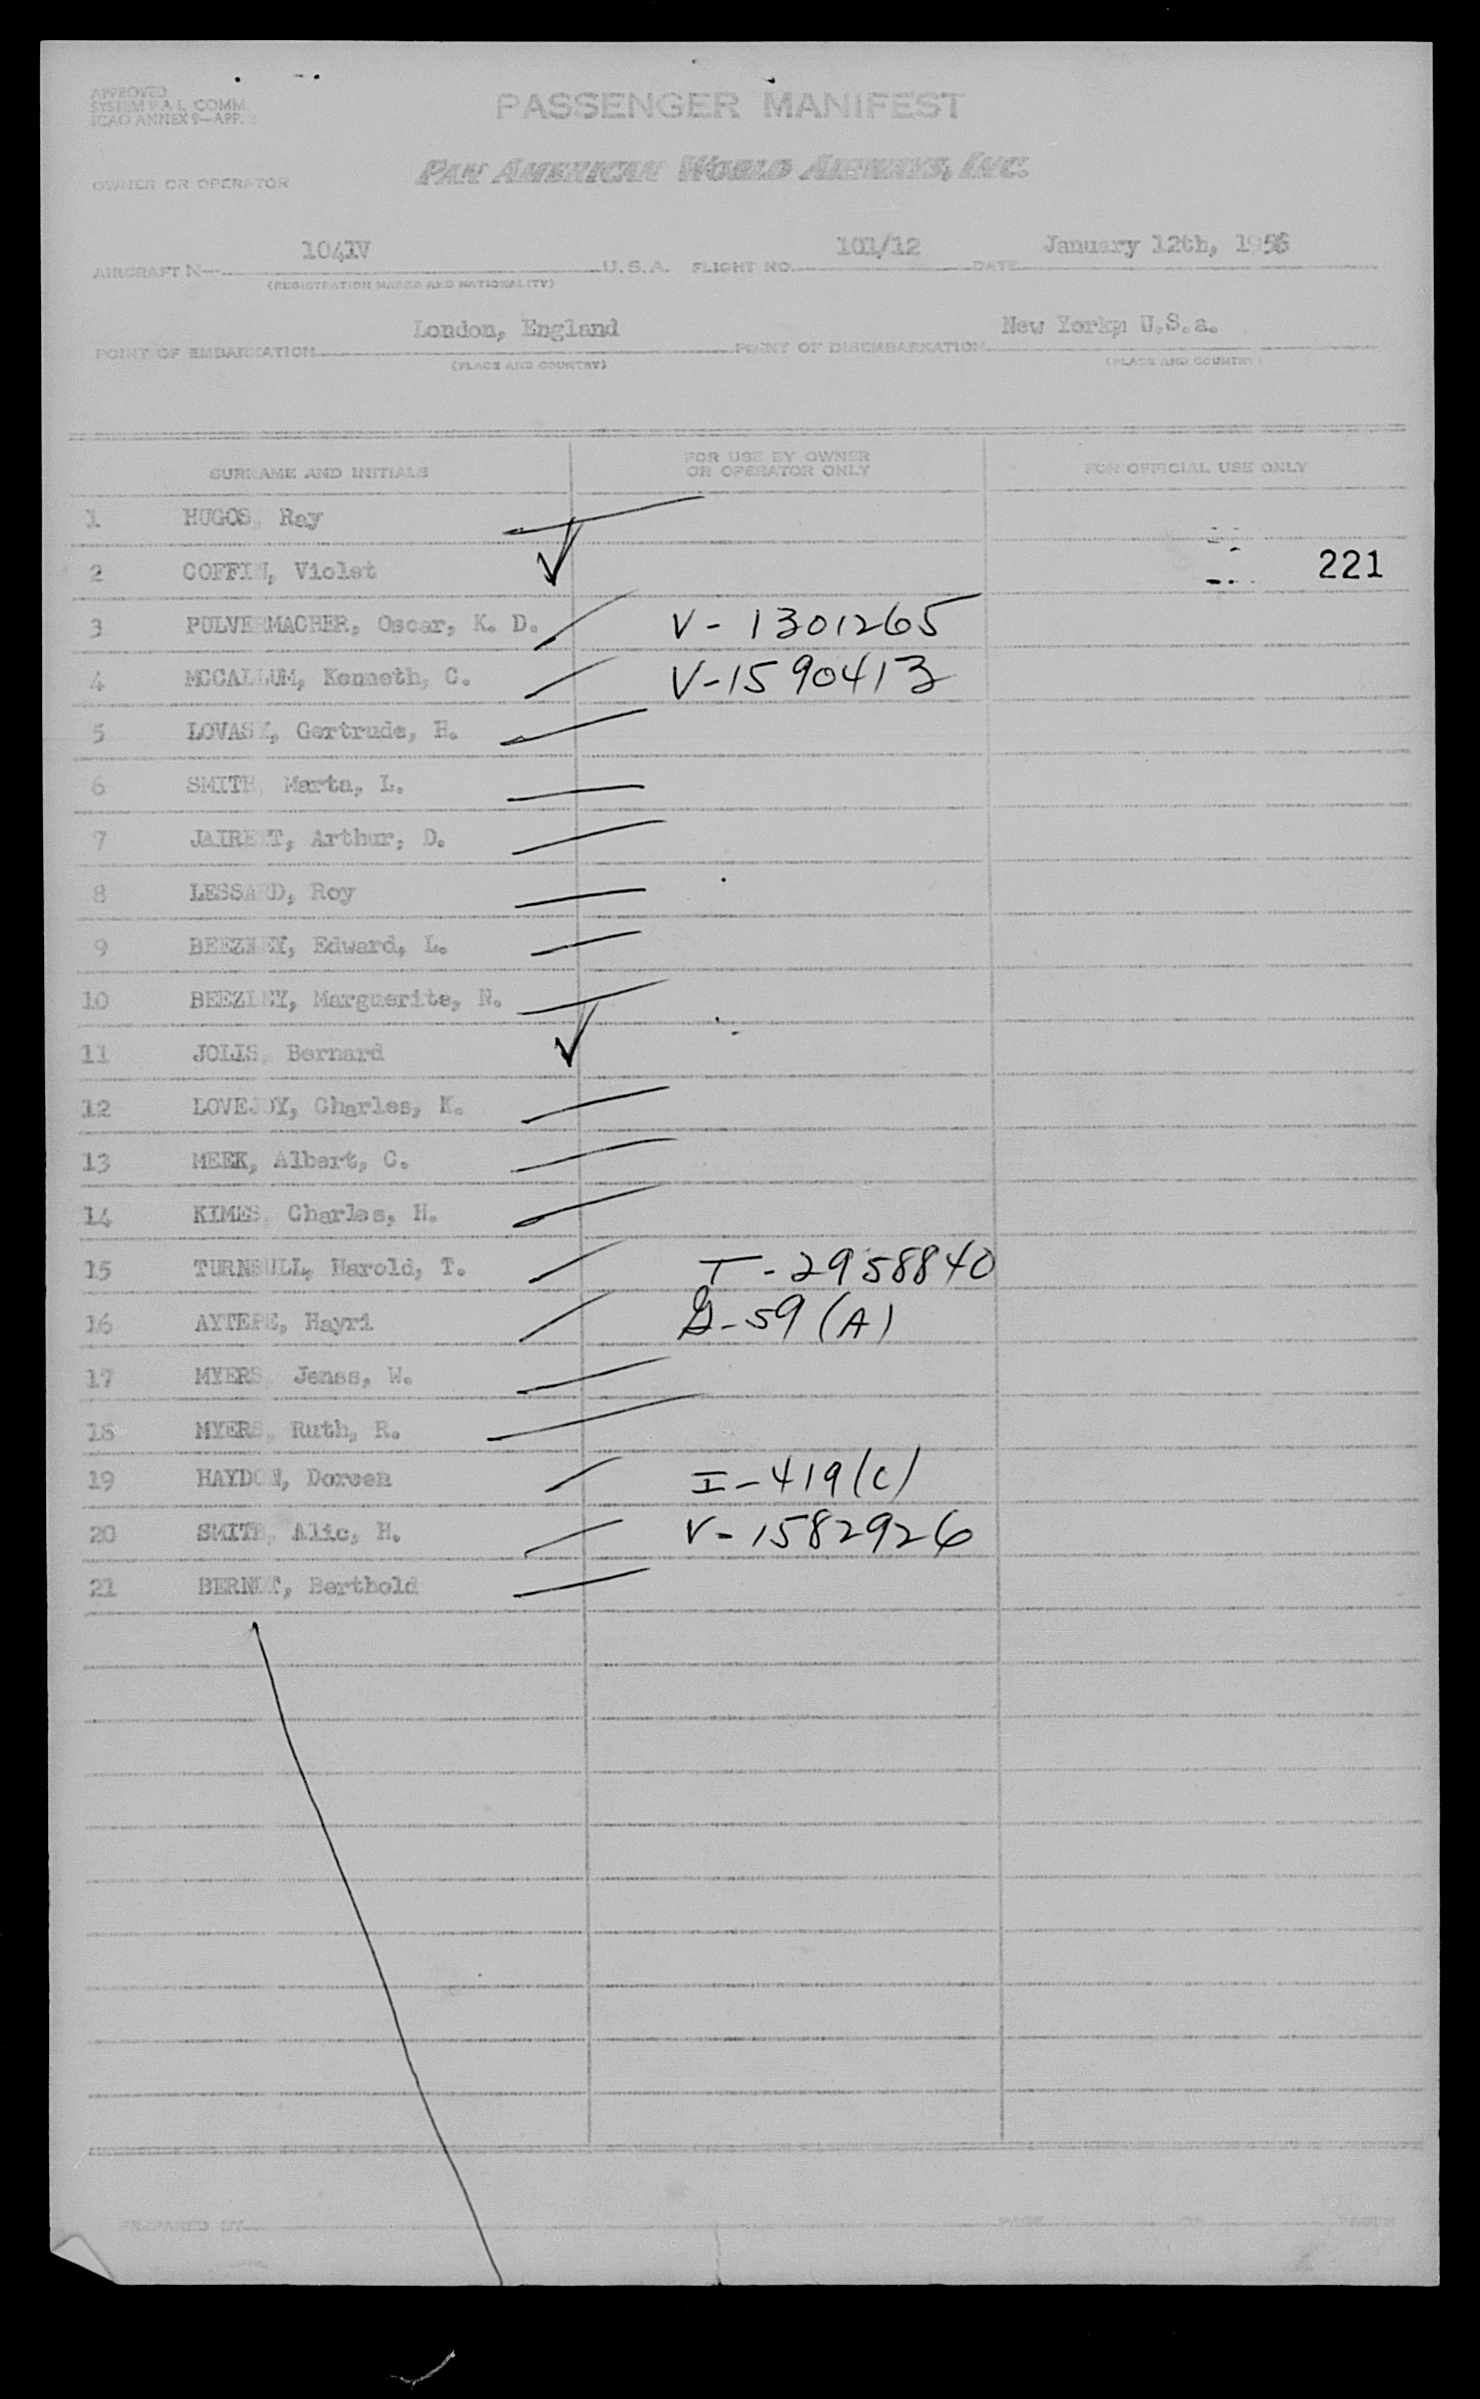 APPROVED
SYSTEM P.A.L. COMM.
ICAO ANNEX 9—APP.
PASSENGER MANIFEST
OWNER OR OPERATOR
PAN AMERICAN WORLD AIRWAYS, INC.
AIRCRAFT N— 1041V U.S.A. FLIGHT NO. 101/12 DATE January 12th, 1956
(REGISTRATION MARKS AND NATIONALITY)
POINT OF EMBARKATION London, England POINT OF DISEMBARKATION New York, U.S.a.
(PLACE AND COUNTRY) (PLACE AND COUNTRY)
SURNAME AND INITIALS FOR USE BY OWNER OR OPERATOR ONLY FOR OFFICIAL USE ONLY
1 HUGOS, Ray
2 COFFIN, Violet 221
3 PULVERMACHER, Oscar, K. D. V-1301265
4 MCCALLUM, Kenneth, C. V-1590413
5 Gertrude, H.
6 SMITH, Marta, L.
7 Arthur, D.
8 LESSARD, Roy
9 Edward, L.
10 BEEZLEY, Marguerite, N.
11 JOLIS, Bernard
12 LOVEJOY, Charles, K.
13 MEEK, Albert, C.
14 KIMES, Charles, H.
15 TURNBULL, Harold, T. T-2958840
16 AYTEPE, Hayri G-59 (A)
17 MYERS, Jenas, W.
18 MYERS, Ruth, R.
19 HAYDON, Doreen I-419(C)
20 SMITH, Alic, H. V-1582926
21 BERNET, Berthold
PREPARED BY PAGE OF PAGES